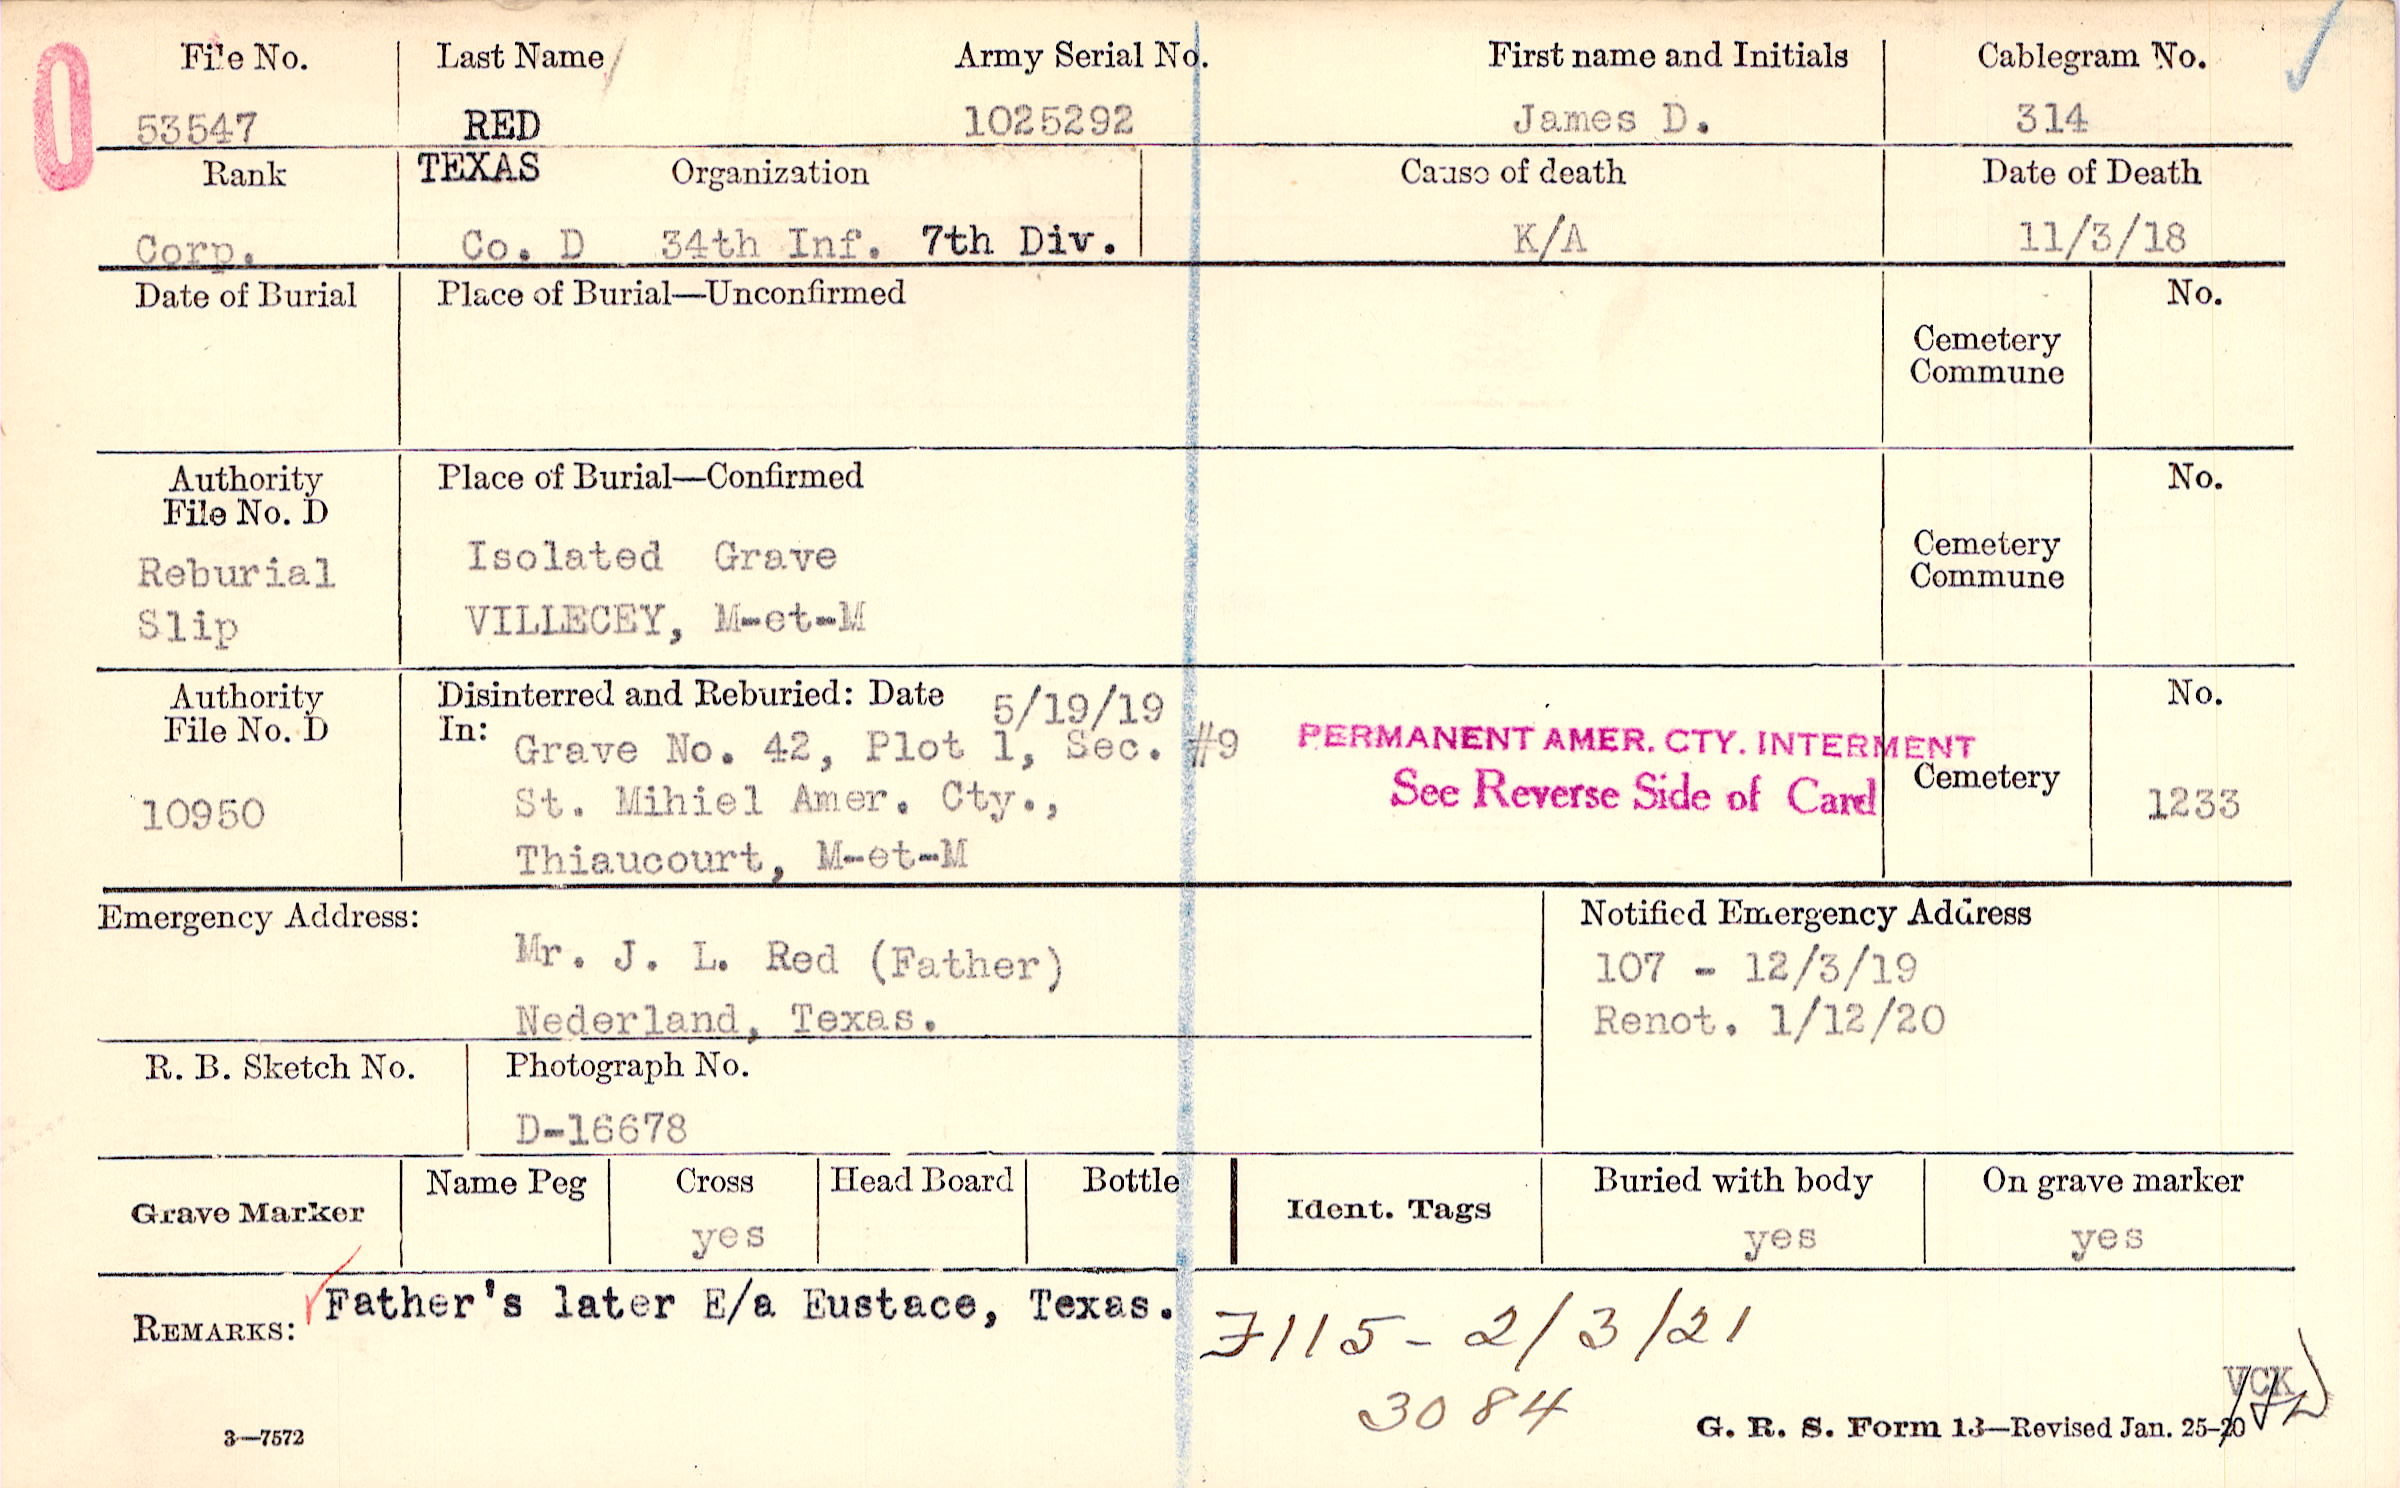 0
File No. Last Name Army Serial No. First name and Initials Cablegram No.
53547 RED 1025292 James D. 314
Rank TEXAS Organization Cause of death Date of Death
Corp. Co. D 34th Inf. 7th Div. K/A 11/3/18
Date of Burial Place of Burial—Unconfirmed No.
Cemetery
Commune
Authority Place of Burial—Confirmed No.
File No. D
Reburial Isolated Grave Cemetery
Slip VILLECEY, M-et-M Commune
Authority Disinterred and Reburied: Date 5/19/19 No.
File No. D In: Grave No. 42, Plot 1, Sec. #9 PERMANENT AMER. CTY. INTERMENT
10950 St. Mihiel Amer. Cty., See Reverse Side of Card Cemetery 1233
Thiaucourt, M-et-M
Emergency Address: Notified Emergency Address
Mr. J. L. Red (Father) 107 - 12/3/19
Nederland, Texas. Renot. 1/12/20
R. B. Sketch No. Photograph No.
D-16678
Grave Marker Name Peg Cross Head Board Bottle Ident. Tags Buried with body On grave marker
yes yes yes
REMARKS: Father's later E/a Eustace, Texas. 7115 - 2/3/21
3084
VCK
3—7572 G. R. S. Form 13—Revised Jan. 25-20